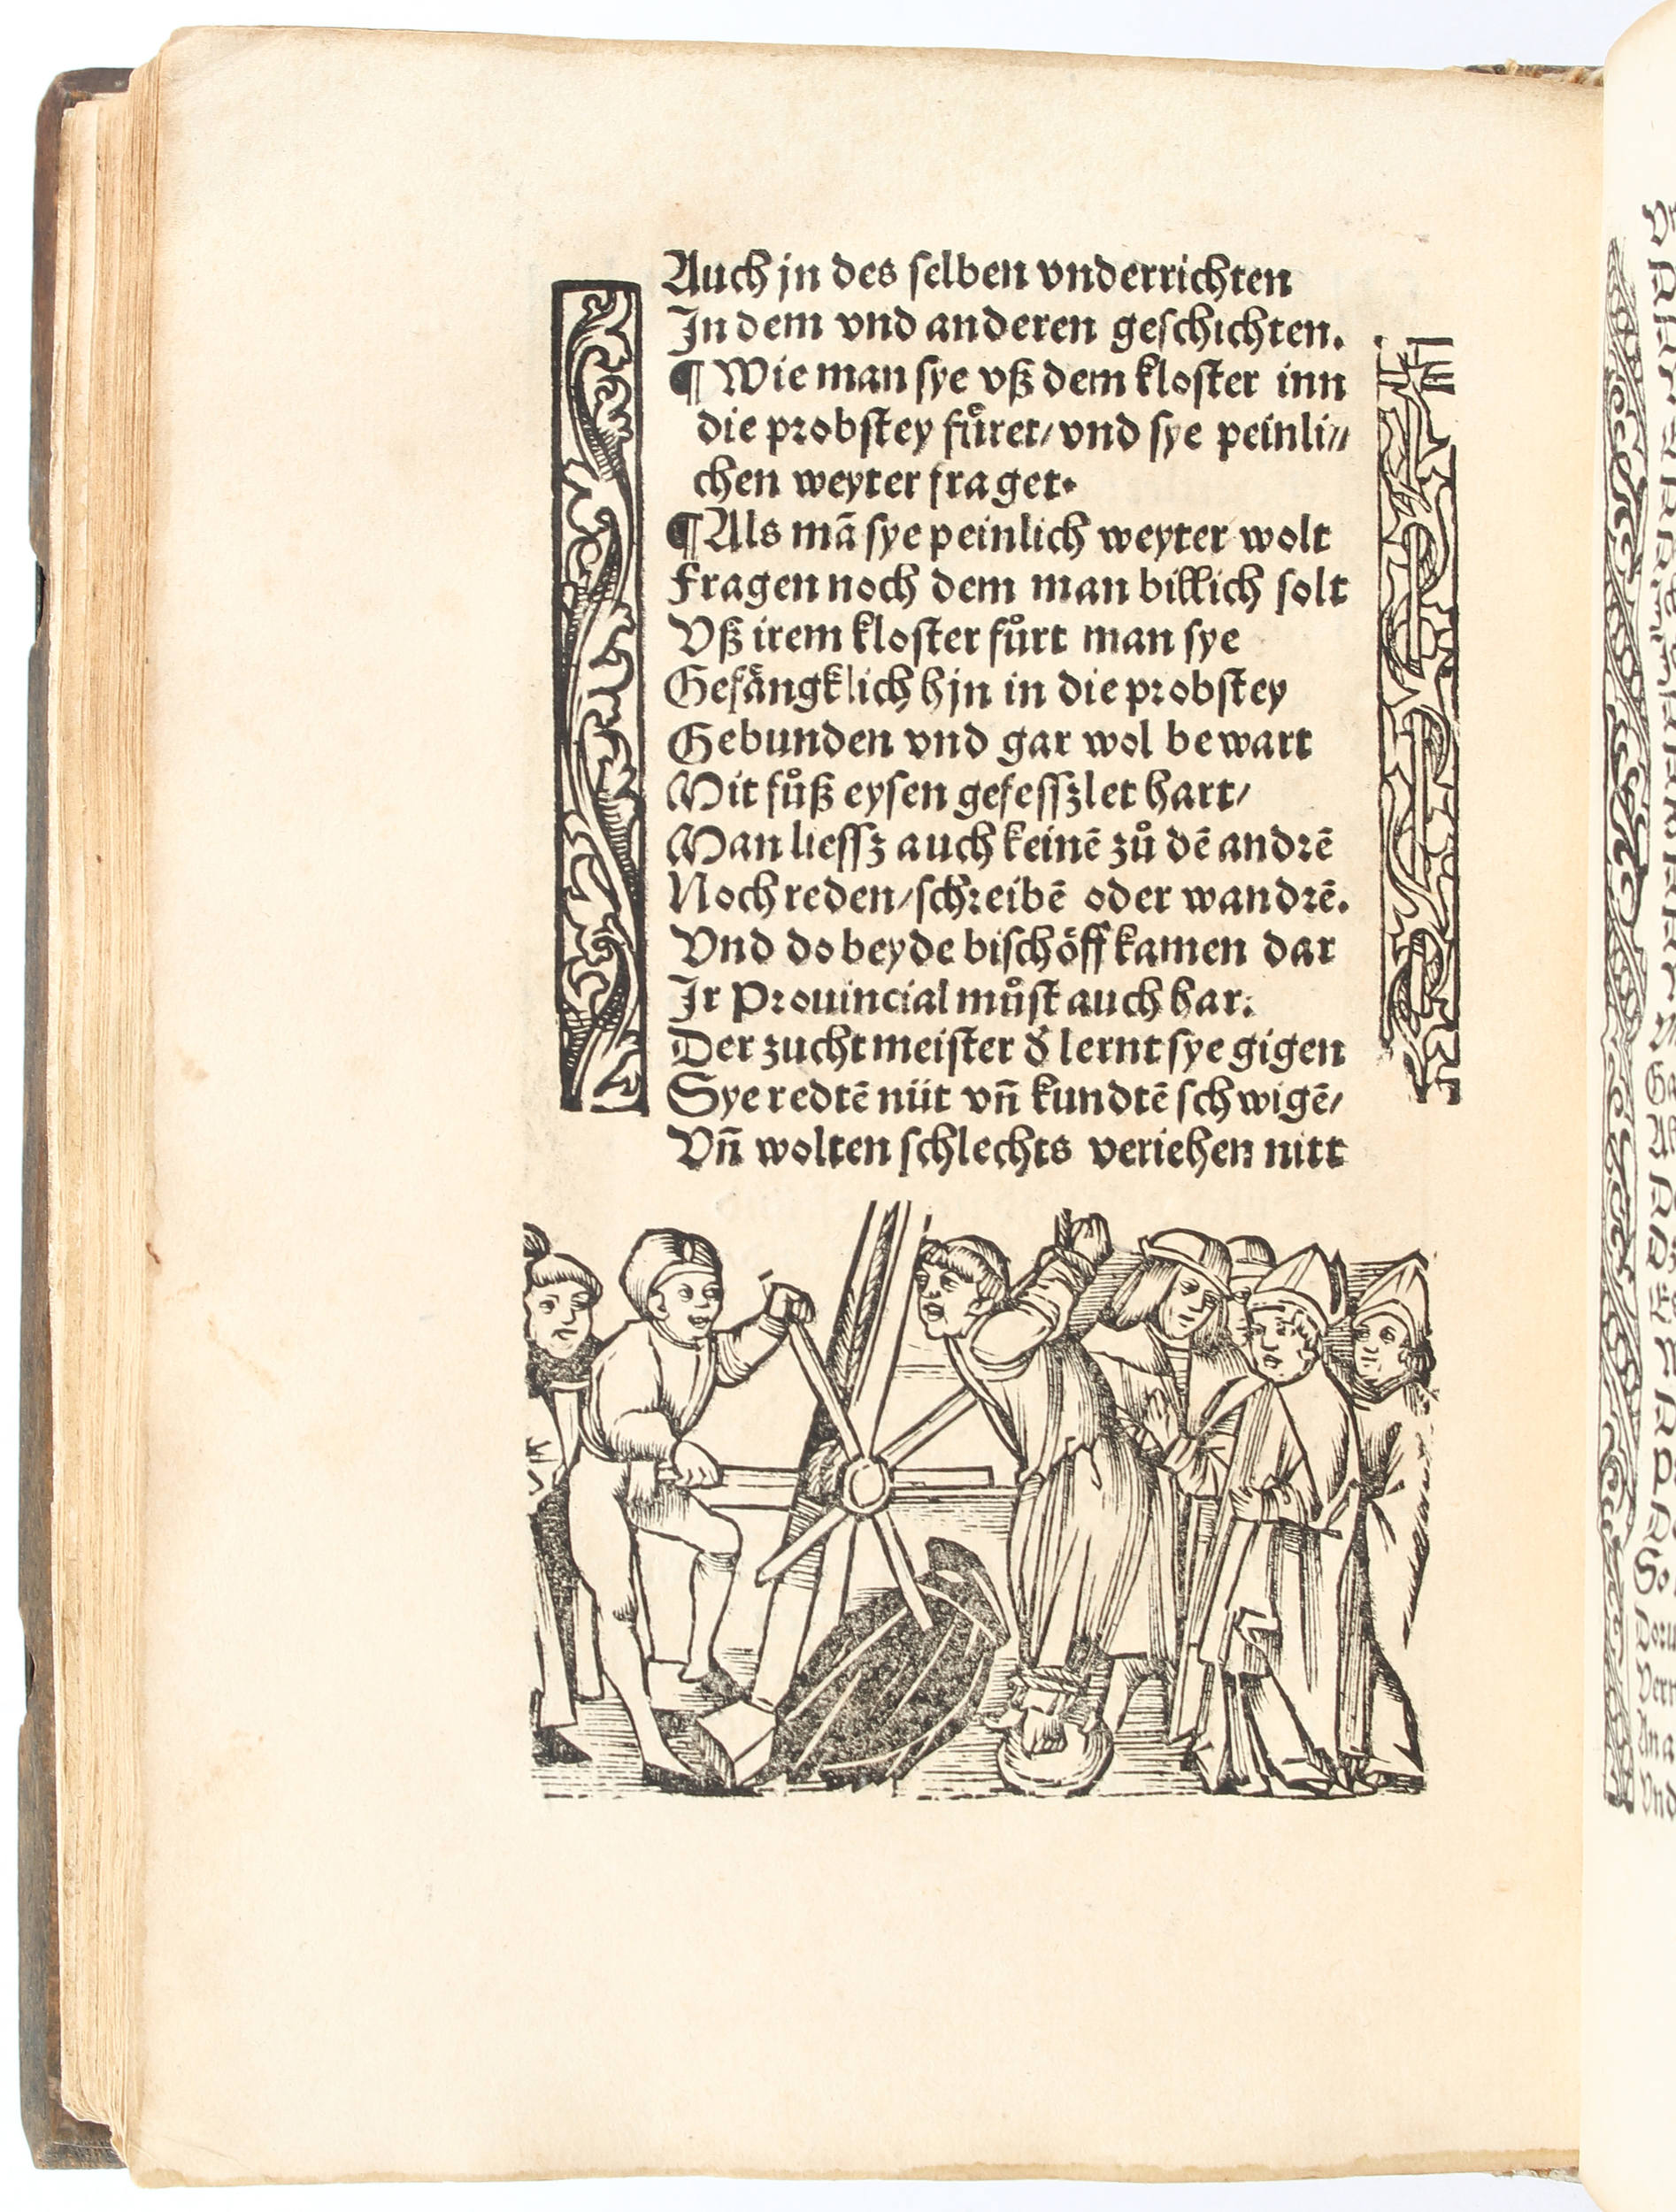 Auch jn des selben vnderrichten
In dem vnd anderen geschichten.
¶ Wie man sye vß dem kloster inn
die probstey fuͤret/ vnd sye peinli⸗
chen weyter fraget.
¶ Als mā sye peinlich weyter wolt
Fragen noch dem man billich solt
Vß irem kloster fuͤrt man sye
Gefaͤngklich hjn in die probstey
Gebunden vnd gar wol bewart
Mit fuͦß eysen gefesszlet hart/
Man liessz auch keinē zuͦ dē andrē
Noch reden/ schreibē oder wandrē.
Vnd do beyde bischoͤff kamen dar
Ir Prouincial muͦst auch har.
Der zuchtmeister d̕ lernt sye gigen
Sye redtē nüt vn̄ kundtē schwigē/
Vn̄ wolten schlechts veriehen nitt